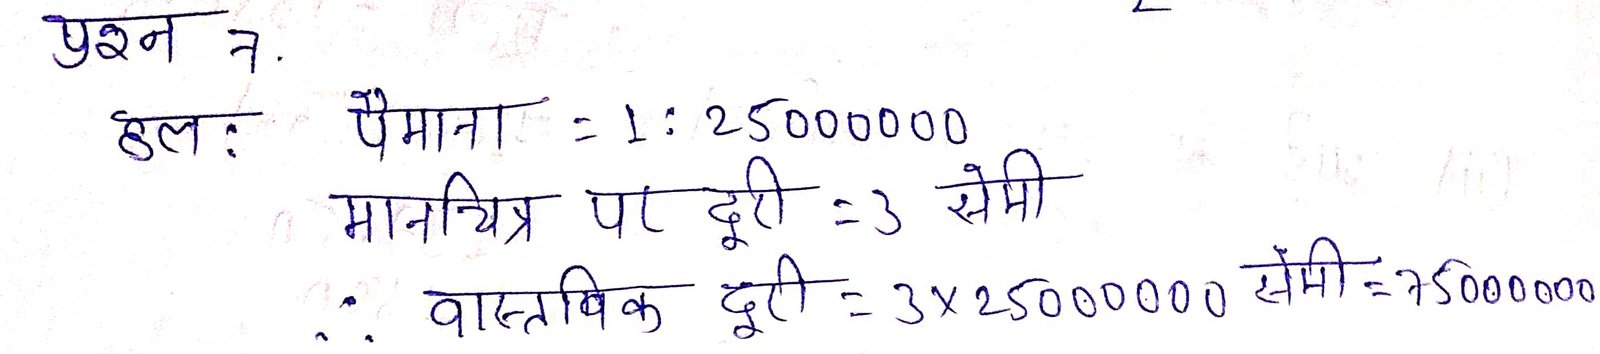 प्रश्न 7.
हल: पैमाना = 1 : 25000000
मानचित्र पर दूरी = 3 सेमी
∴ वास्तविक दूरी = 3 × 25000000 सेमी = 75000000